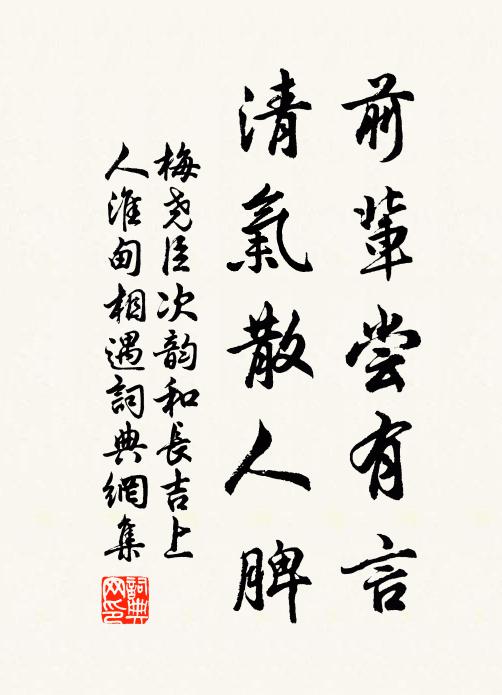 前輩尝有言
清氣散人脾
梅尧臣次韵和長吉上
人淮甸相遇詞典網集
詞典网印